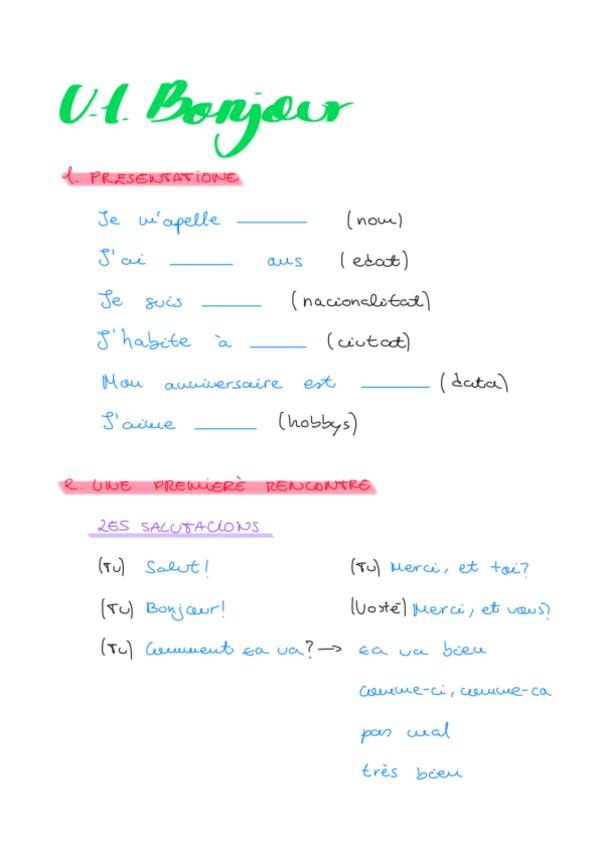 U.1. Bonjour
1. PRESENTATIONE
Je m'apelle ______ (nom)
J'ai ______ ans (edat)
Je suis ______ (nacionalitat)
J'habite à ______ (ciutat)
Mon anniversaire est ______ (data)
J'aime ______ (hobbys)
2. UNE PREMIERÈ RENCONTRE
LES SALUTACIONS
(Tu) Salut! (Tu) Merci, et toi?
(Tu) Bonjour! (Vosté) Merci, et vous?
(Tu) Comment ça va? → ça va bien
comme-ci, comme-ca
pas mal
très bien